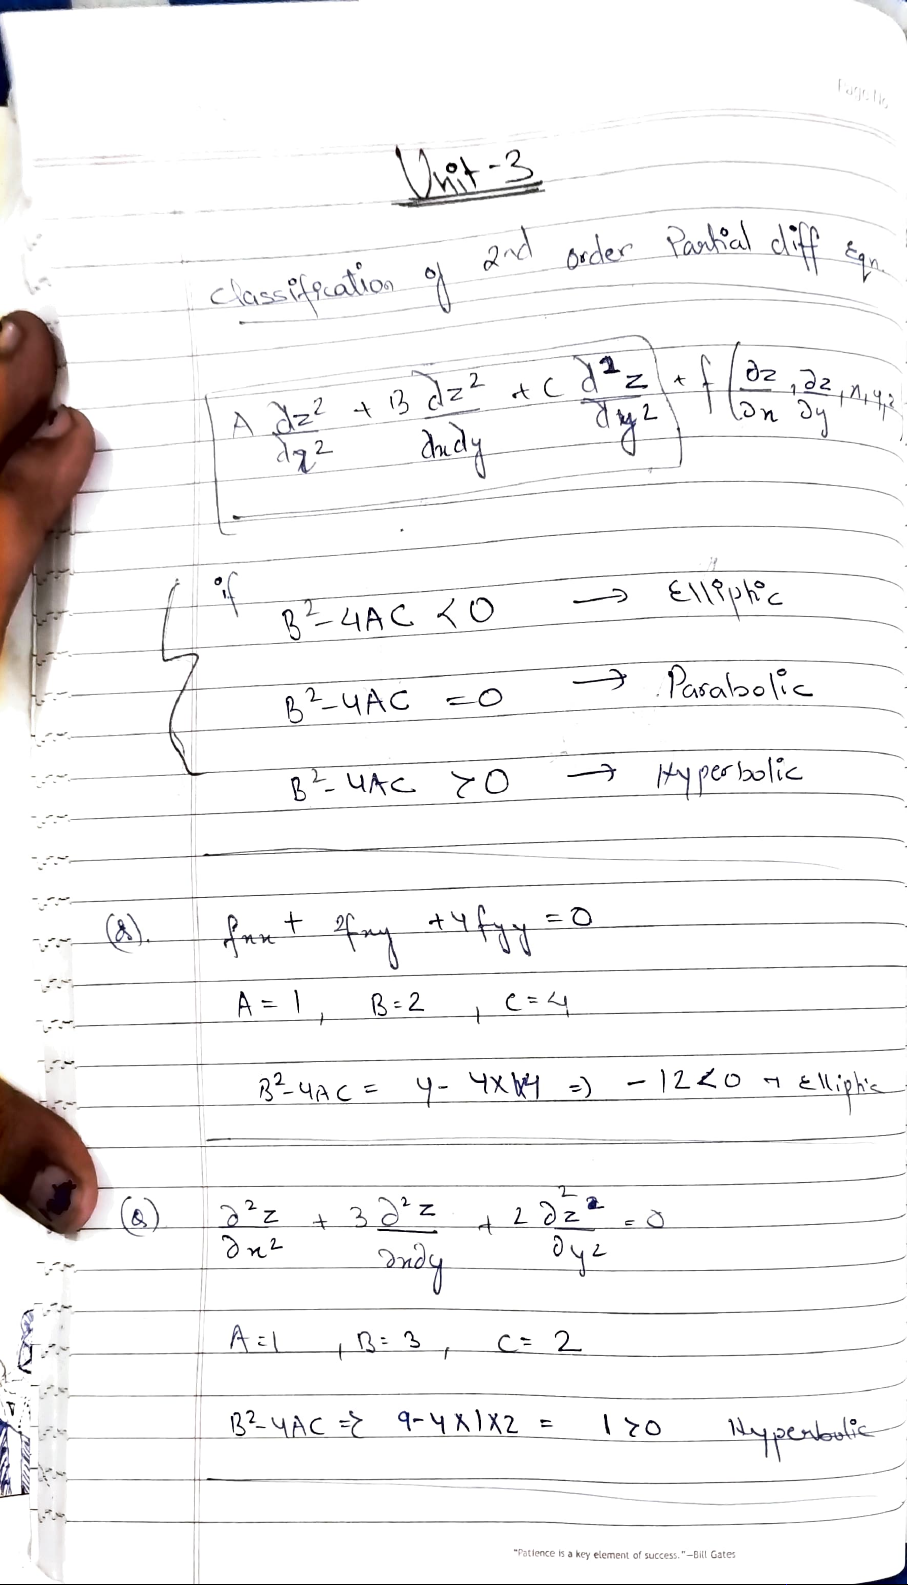 Page No
Unit-3
Classification of 2nd order Partial diff Eqn.
A dz²/dx² + B dz²/dxdy + C d²z/dy² + f(∂z/∂x, ∂z/∂y, x, y, z
if
B²-4AC < 0 → Elliptic
B²-4AC = 0 → Parabolic
B²-4AC > 0 → Hyperbolic
(Q). fxx + 2fxy + 4fyy = 0
A = 1, B = 2, C = 4
B²-4AC = 4 - 4×1×4 => -12 < 0 → Elliptic
(Q) ∂²z/∂x² + 3 ∂²z/∂x∂y + 2 ∂²z/∂y² = 0
A = 1, B = 3, C = 2
B²-4AC => 9-4×1×2 = 1 > 0 Hyperbolic
"Patience is a key element of success."—Bill Gates